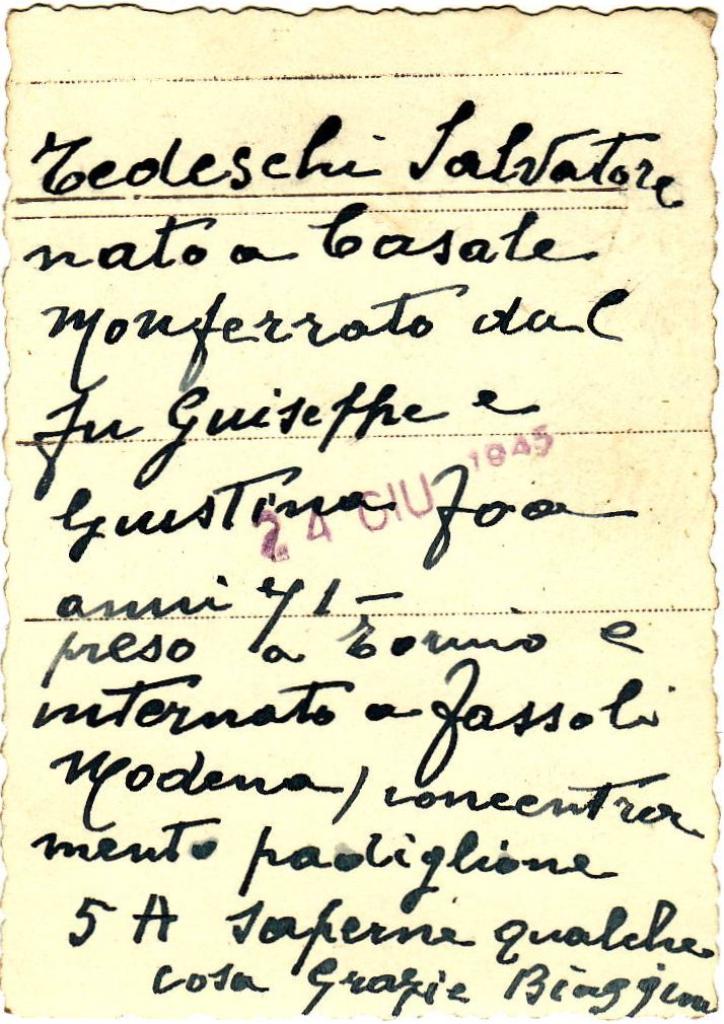 Tedeschi Salvatore
nato a Casale
Monferrato dal
fu Guiseppe e
Giustina Foa
24 GIU 1945
anni 71 -
preso a Torino e
internato a Fassoli
Modena) concentra
mento padiglione
5 A saperne qualche
cosa Grazie